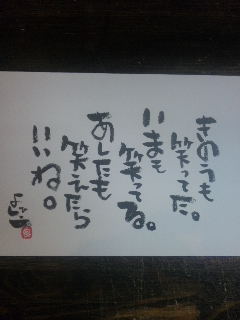 きのうも
笑ってた。
いまも
笑ってる。
あしたも
笑えたら
いいね。